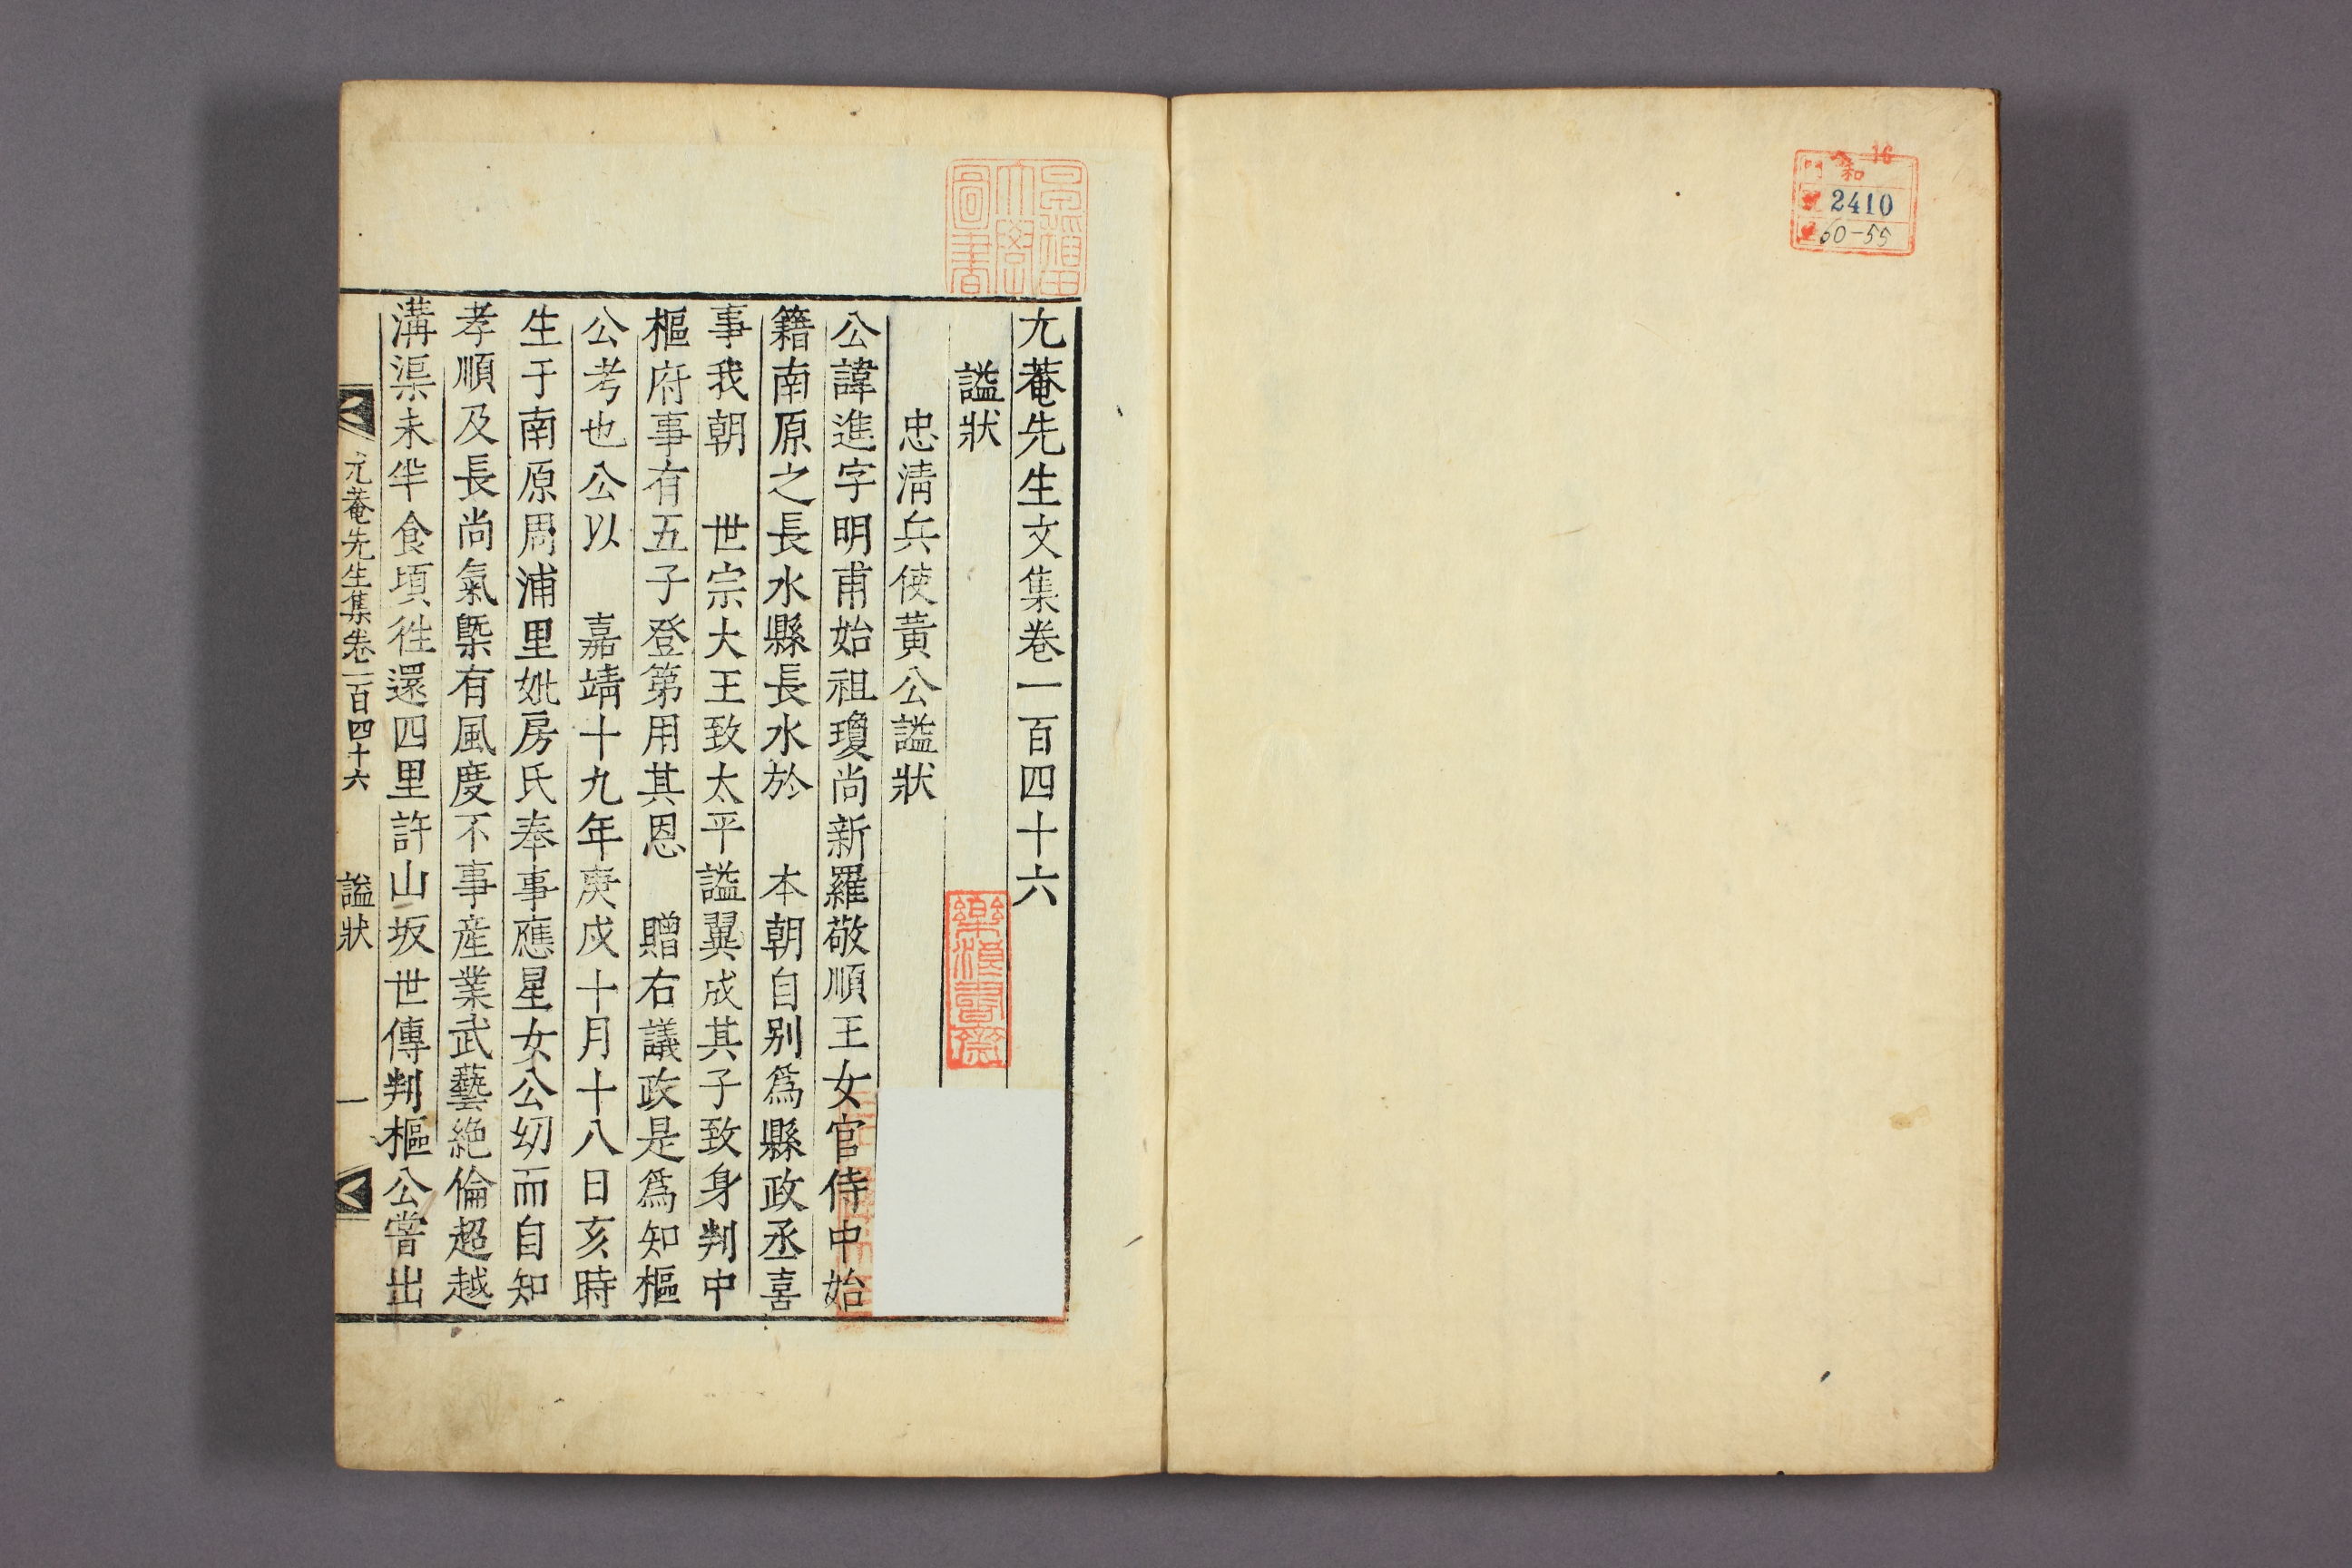 16
和
門
2410
60-55
早稲田大學圖書
尤菴先生文集卷一百四十六
樂浪書齋
諡狀
忠淸兵使黃公諡狀
公諱進字明甫始祖瓊尚新羅敬順王女官侍中始
籍南原之長水縣長水於　本朝自别爲縣政丞喜
事我朝　世宗大王致太平諡翼成其子致身判中
樞府事有五子登第用其恩　贈右議政是爲知樞
公考也公以　嘉靖十九年庚戌十月十八日亥時
生于南原周浦里妣房氏奉事應星女公幼而自知
孝順及長尚氣槩有風度不事産業武藝絶倫超越
溝渠未半食頃徃還四里許山坂世傳判樞公嘗出
尤菴先生集卷一百四十六　諡狀　一